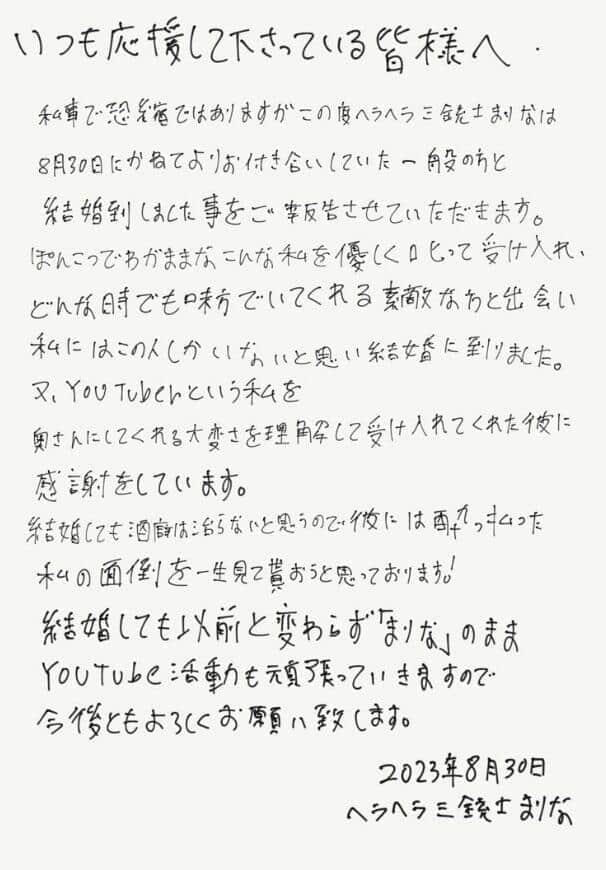 いつも応援して下さっている皆様へ.
私事で恐縮ではありますがこの度ヘラヘラ三銃士まりなは
8月30日にかねてよりお付き合いしていた一般の方と
結婚到しました事をご報告させていただきます。
ぽんこつでわがままな、こんな私を優しく叱って受け入れ、
どんな時でも味方でいてくれる素敵な方と出会い
私にはこの人しかいないと思い結婚に到りました。
又、YOUTuberという私を
奥さんにしてくれる大変さを理解して受け入れてくれた彼に
感謝をしています。
結婚しても酒癖は治らないと思うので彼には酔っ払った
私の面倒を一生見て貰おうと思っております!
結婚しても以前と変わらず「まりな」のまま
YOUTube活動も頑張っていきますので
今後ともよろしくお願い致します。
2023年8月30日
ヘラヘラ三銃士まりな